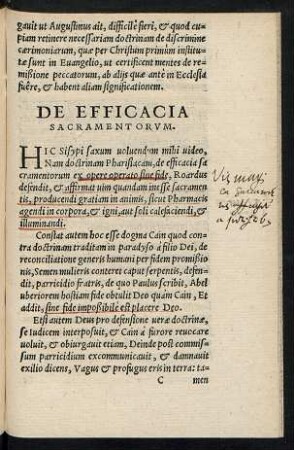 gauit ut Augustinus ait, difficilè fieri, & quod cu-
piam retinere necessariam doctrinam de discrimine
cærimoniarum, quæ per Christum primùm institu-
tæ sunt in Euangelio, ut certificent mentes de re-
missione peccatorum, ab alijs quæ antè in Ecclesia
fuêre, & habent aliam significationem.
DE EFFICACIA
SACRAMENTORVM.
HIC Sisypi saxum uoluendum mihi uideo,
Nam doctrinam Pharisaicam, de efficacia sa
cramentorum ex opere operato sine fide, Roardus
defendit, & affirmat uim quandam inesse sacramen
tis, producendi gratiam in animis, sicut Pharmacis
agendi in corpora, & igni, aut soli calefaciendi, &
illuminandi.
Constat autem hoc esse dogma Cain quod con
tra doctrinam traditam in paradyso à filio Dei, de
reconciliatione generis humani per fidem promissio
nis, Semen mulieris conteret caput serpentis, defen-
dit, parricidio fratris, de quo Paulus scribit, Abel
uberiorem hostiam fide obtulit Deo quàm Cain, Et
addit, sine fide impoßibile est placere Deo.
Est autem Deus pro defensione ueræ doctrinæ,
se Iudicem interposuit, & Cain à furore reuocare
uoluit, & obiurgauit etiam, Deinde post commis-
sum parricidium excommunicauit, & damnauit
exilio dicens, Vagus & profugus eris in terra: ta-
C men